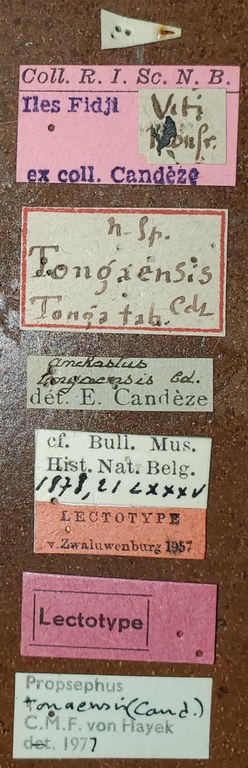 Coll. R. I. Sc. N. B.
Iles Fidji
Viti
ex coll. Candèze
n. Sp.
Tongaensis
Tonga tab. Cdz
Anchastus
tongaensis Cd.
dét. E. Candèze
cf. Bull. Mus.
Hist. Nat. Belg.
1878, 21 LXXXV
LECTOTYPE
v. Zwaluwenburg 1957
Lectotype
Propsephus
tonaensis (Cand.)
C.M.F. von Hayek
det. 1977